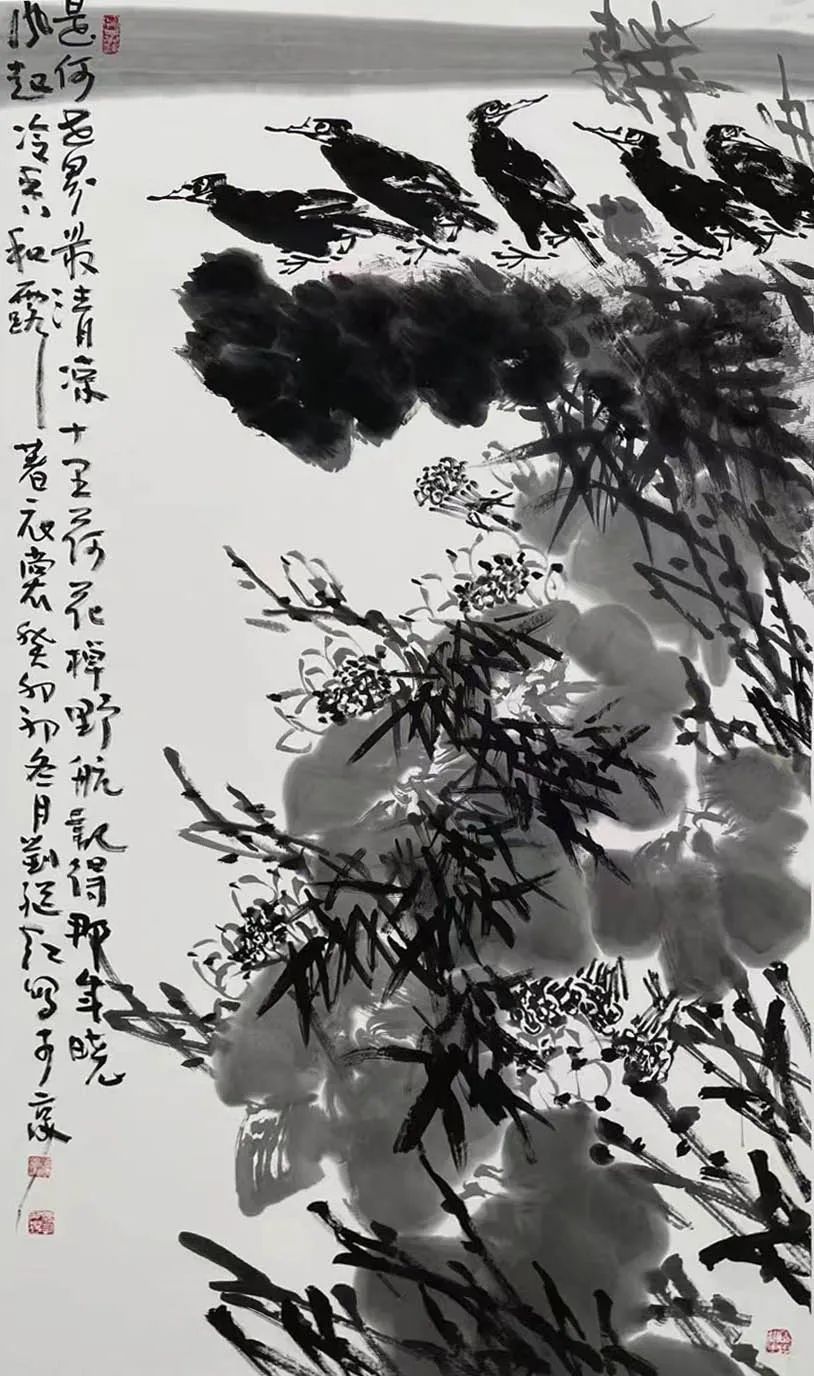 是何世界最清凉十里荷花棹野航觀得那年晓
风起冷香和露着衣裳癸卯初冬月劉红写于京